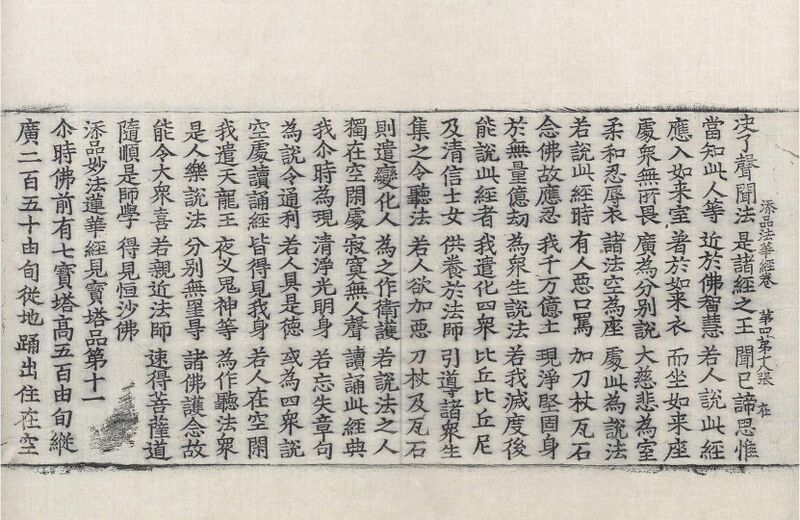 添品法華經卷 第四第十八張 在
决了聲聞法 是諸經之王 聞已諦思惟
當知此人等 近於佛智慧 若人說此經
應入如来室 著於如来衣 而坐如来座
處衆無所畏 廣為分別說 大慈悲為室
柔和忍辱衣 諸法空為座 處此為說法
若說此經時 有人惡口罵 加刀杖瓦石
念佛故應忍 我千万億土 現淨堅固身
於無量億劫 為衆生說法 若我滅度後
能說此經者 我遣化四衆 比丘比丘尼
及清信士女 供養於法師 引導諸衆生
集之令聽法 若人欲加惡 刀杖及瓦石
則遣變化人 為之作衛護 若說法之人
獨在空閑處 寂寞無人聲 讀誦此經典
我尒時為現 清淨光明身 若忘失章句
為說令通利 若人具是德 或為四衆說
空處讀誦經 皆得見我身 若人在空閑
我遣天龍王 夜叉鬼神等 為作聽法衆
是人樂說法 分別無罣㝵 諸佛護念故
能令大衆喜 若親近法師 速得菩薩道
隨順是師學 得見恒沙佛
添品妙法蓮華經見寶塔品第十一
尒時佛前有七寶塔高五百由旬縱
廣二百五十由旬從地踊出住在空